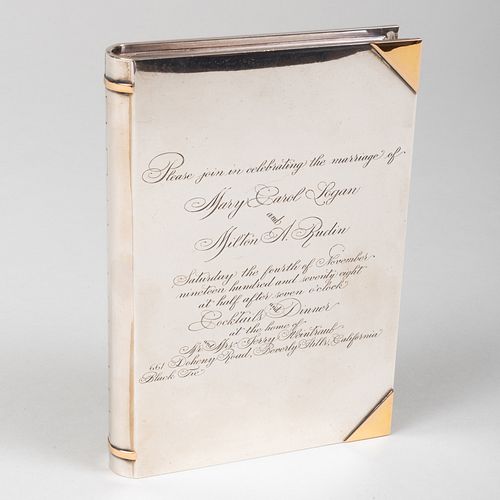 Please join in celebrating the marriage of
Mary Carol Logan
and
Milton A. Rudin
Saturday the fourth of November
nineteen hundred and seventy eight
at half after seven o'clock
Cocktails and Dinner
at the home of
Mr and Mrs Jerry Weintraub
661 Doheny Road, Beverly Hills, California
Black Tie